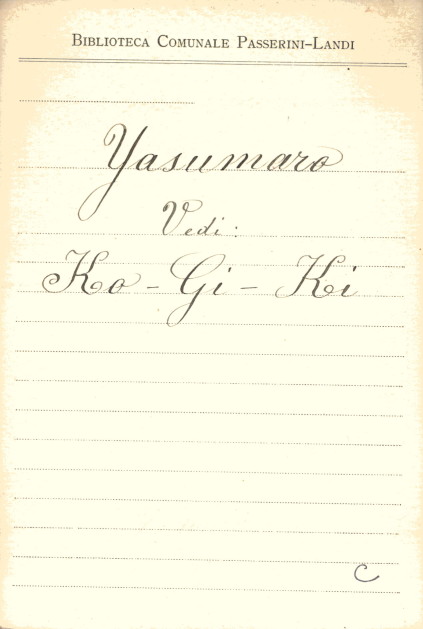 Biblioteca Comunale Passerini-Landi
Yasumaro
Vedi:
Ko-Gi-Ki
C